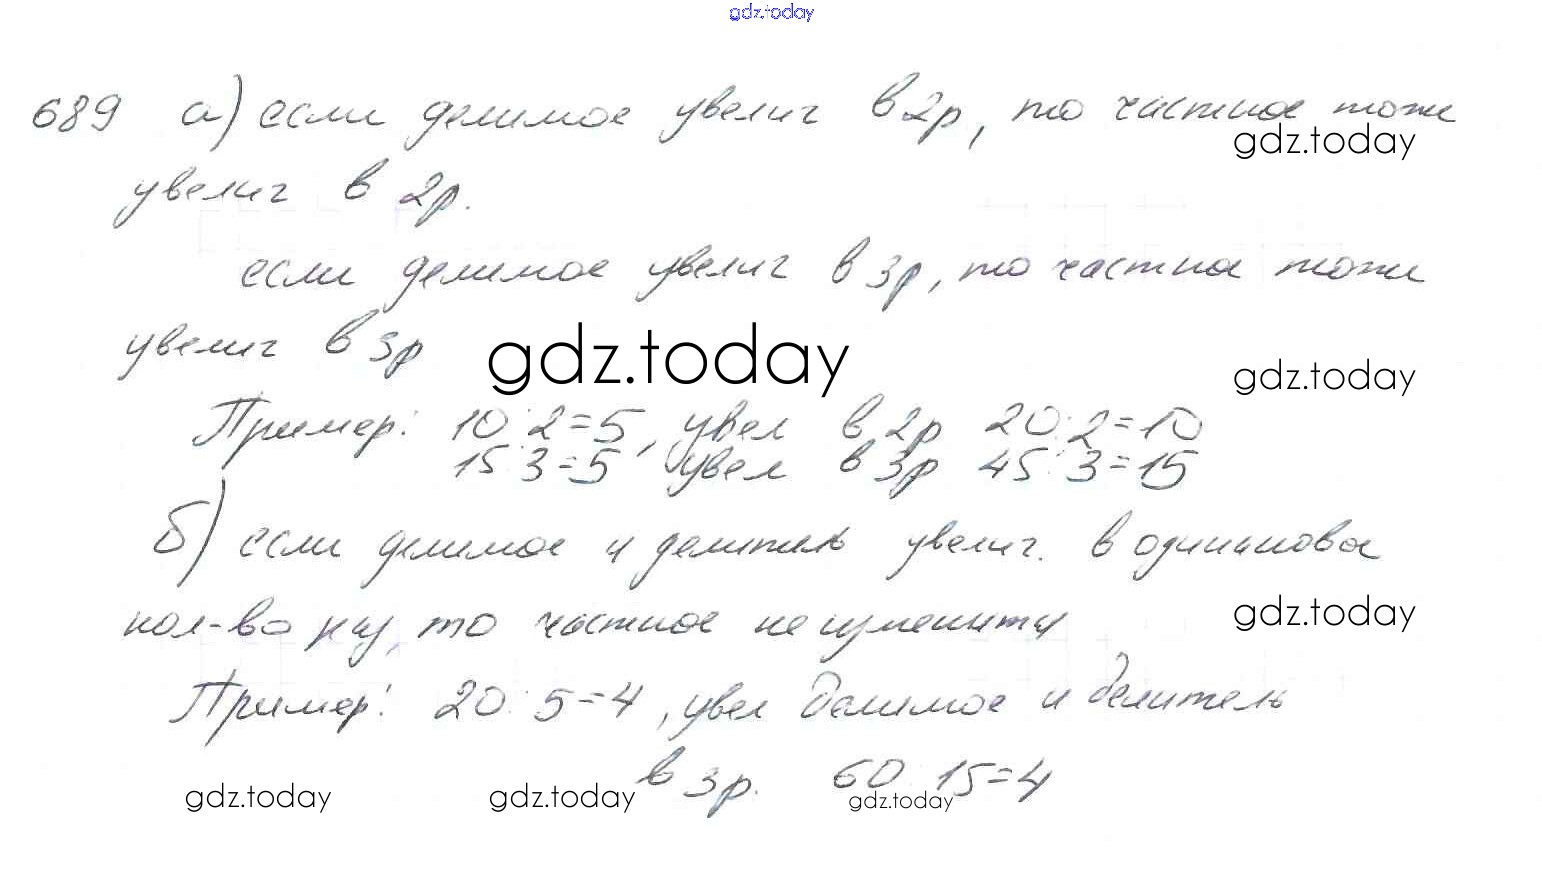 gdz.today
689 а) если делимое увелич в 2р, то частное тоже
gdz.today
увелич в 2р.
если делимое увелич в 3р, то частное тоже
увелич в 3р
gdz.today
gdz.today
Пример: 10:2=5, увел в 2р 20:2=10
15:3=5 увел в 3р 45:3=15
б) если делимое и делитель увелич. в одинаковое
gdz.today
кол-во раз, то частное не изменится
Пример: 20:5=4, увел делимое и делитель
в 3р. 60:15=4
gdz.today gdz.today gdz.today